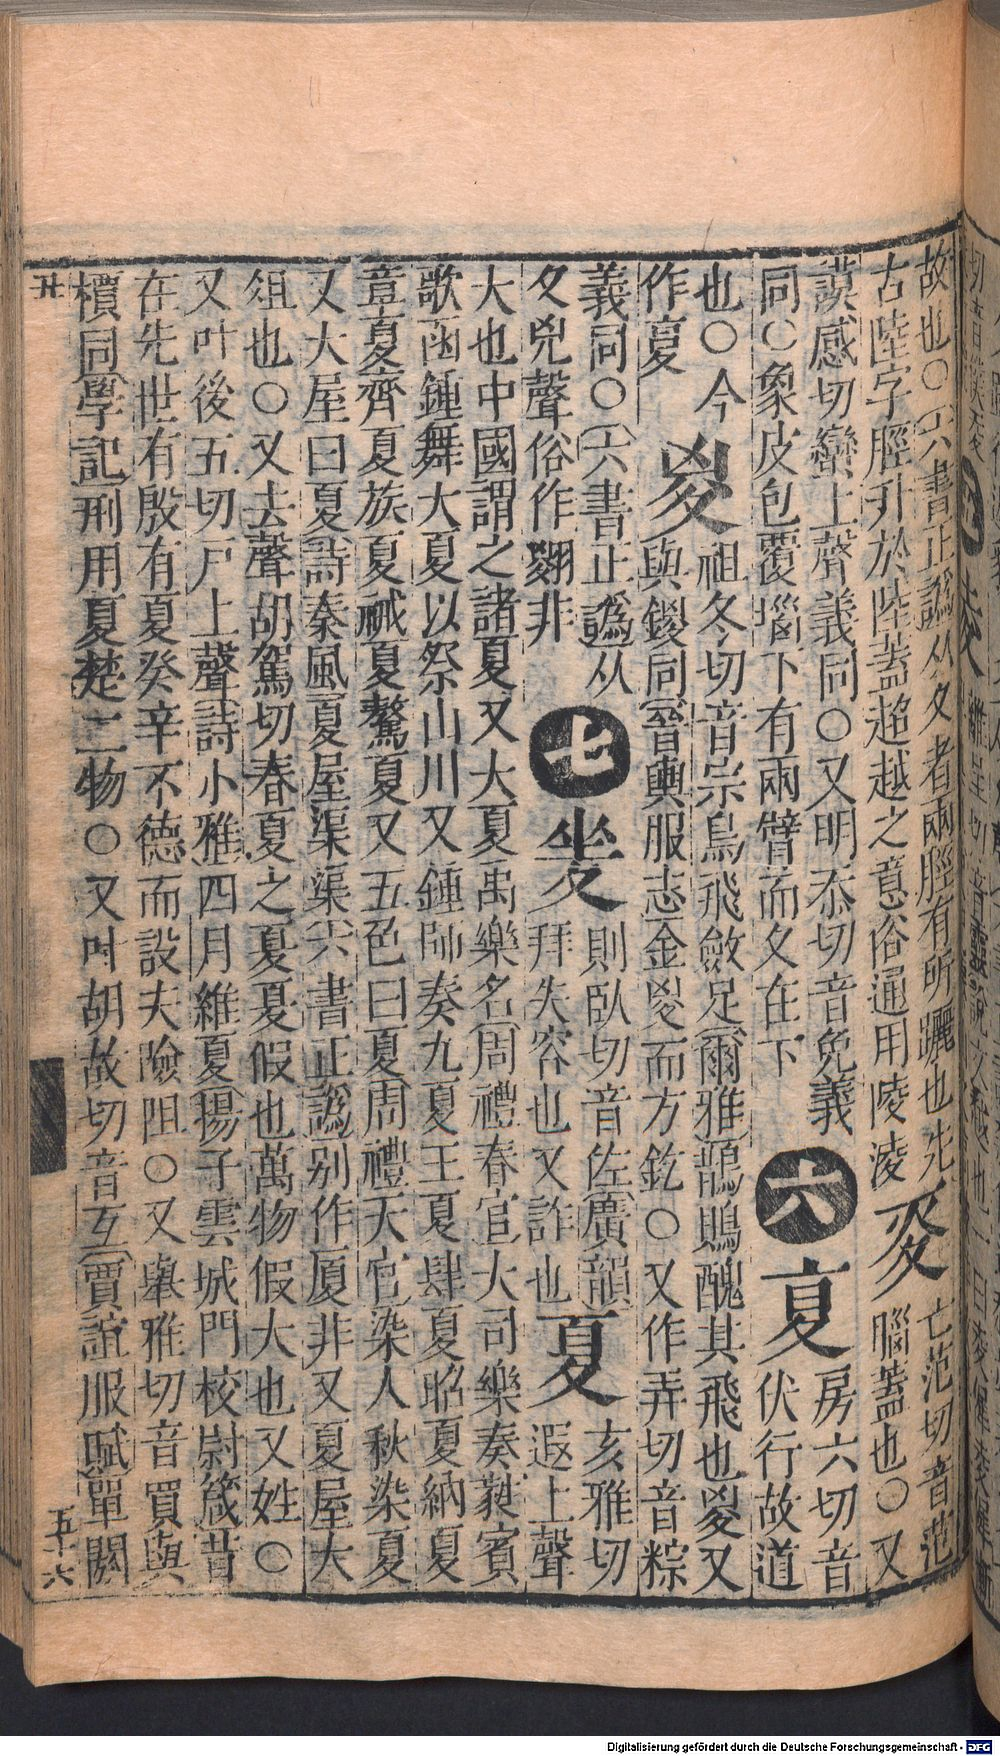 故也○六書正譌从夂者兩脛有所躧也先
古陸字脛升於陸蓋超越之意俗通用陵凌
㚇亡范切音范
腦蓋也○又
謨感切蠻上聲義同○又明忝切音免義
同○象皮包覆𡿺下有兩臂而夂在下
六
㚆房六切音
伏行故道
也○今
作㚆
㚇祖冬切音宗鳥飛斂足爾雅鵲鵙醜其飛也㚇又
與鍐同晉輿服志金㚇而方釳○又作弄切音粽
義同○六書正譌从
夂兇聲俗作翪非
七
夎則臥切音佐廣韻
拜失容也又詐也
夏亥雅切
遐上聲
大也中國謂之諸夏又大夏禹樂名周禮春官大司樂奏蕤賓
歌函鍾舞大夏以祭山川又鍾師奏九夏王夏肆夏昭夏納夏
章夏齊夏族夏祴夏驁夏又五色曰夏周禮天官染人秋染夏
又大屋曰夏詩秦風夏屋渠渠六書正譌別作厦非又夏屋大
俎也○又去聲胡駕切春夏之夏夏假也萬物假大也又姓○
又叶後五切戶上聲詩小雅四月維夏揚子雲城門校尉箴昔
在先世有殷有夏癸辛不德而設夫險阻○又舉雅切音賈與
檟同學記刑用夏楚二物○又叶胡故切音互賈誼服賦單閼
丑
五十六
Digitalisierung gefördert durch die Deutsche Forschungsgemeinschaft - DFG